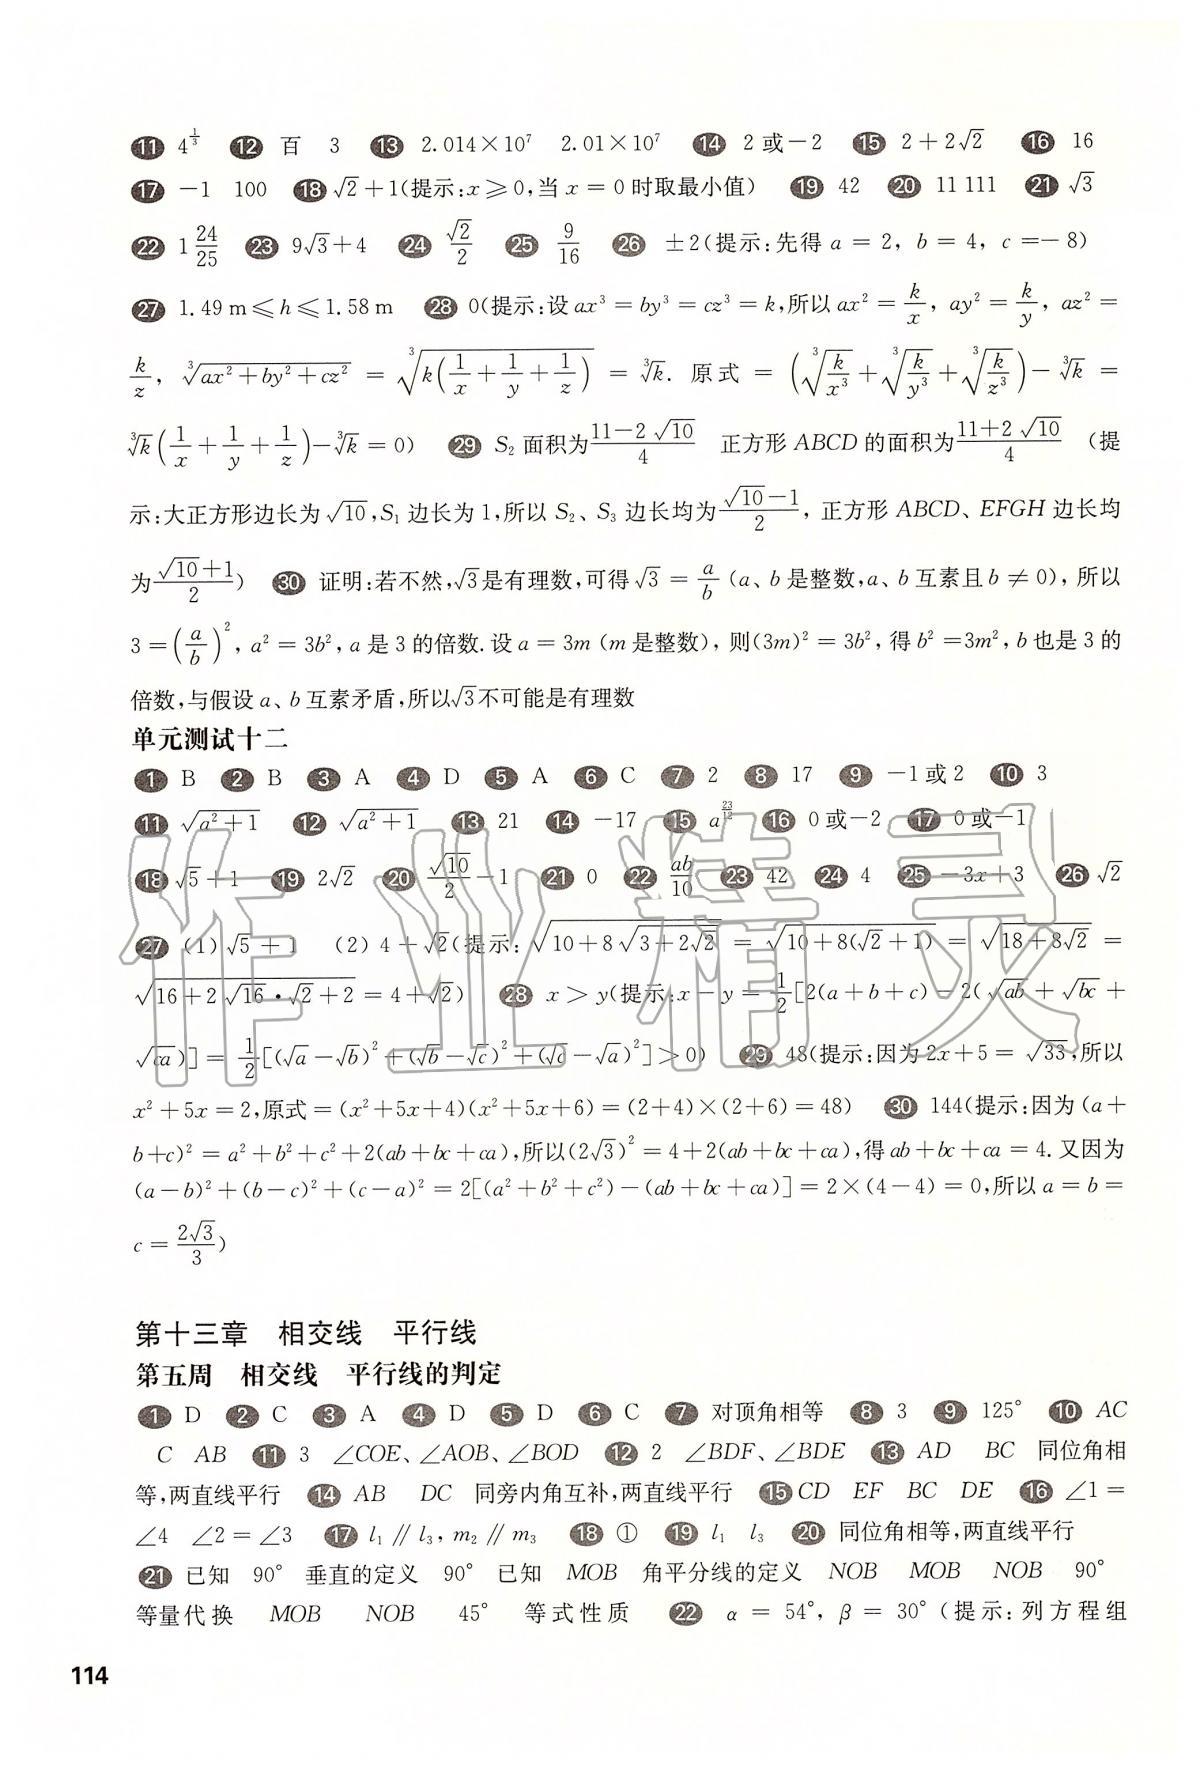 11 4^{1/3} 12 百 3 13 2.014×10⁷ 2.01×10⁷ 14 2或−2 15 2+2√2 16 16
17 −1 100 18 √2+1(提示:x≥0,当x=0时取最小值) 19 42 20 11 111 21 √3
22 1 24/25 23 9√3+4 24 √2/2 25 9/16 26 ±2(提示:先得a=2, b=4, c=−8)
27 1.49 m≤h≤1.58 m 28 0(提示:设ax³=by³=cz³=k,所以ax²=k/x, ay²=k/y, az²=
k/z, ∛(ax²+by²+cz²) = ∛(k(1/x+1/y+1/z)) = ∛k. 原式=(∛(k/x³)+∛(k/y³)+∛(k/z³))−∛k=
∛k(1/x+1/y+1/z)−∛k=0) 29 S₂面积为(11−2√10)/4 正方形ABCD的面积为(11+2√10)/4 (提
示:大正方形边长为√10,S₁边长为1,所以S₂、S₃边长均为(√10−1)/2, 正方形ABCD、EFGH边长均
为(√10+1)/2) 30 证明:若不然,√3是有理数,可得√3=a/b(a、b是整数,a、b互素且b≠0), 所以
3=(a/b)², a²=3b², a是3的倍数. 设a=3m(m是整数), 则(3m)²=3b², 得b²=3m², b也是3的
倍数,与假设a、b互素矛盾,所以√3不可能是有理数
单元测试十二
1 B 2 B 3 A 4 D 5 A 6 C 7 2 8 17 9 −1或2 10 3
11 √(a²+1) 12 √(a²+1) 13 21 14 −17 15 a^{23/12} 16 0或−2 17 0或−1
18 √5+1 19 2√2 20 √10/2−1 21 0 22 ab/10 23 42 24 4 25 −3x+3 26 √2
27 (1)√5+1 (2)4+√2(提示:√(10+8√(3+2√2))=√(10+8(√2+1))=√(18+8√2)=
√(16+2√16•√2+2)=4+√2) 28 x>y(提示:x−y=1/2[2(a+b+c)−2(√ab+√bc+
√ca)]=1/2[(√a−√b)²+(√b−√c)²+(√c−√a)²]>0) 29 48(提示:因为2x+5=√33,所以
x²+5x=2,原式=(x²+5x+4)(x²+5x+6)=(2+4)×(2+6)=48) 30 144(提示:因为(a+
b+c)²=a²+b²+c²+2(ab+bc+ca),所以(2√3)²=4+2(ab+bc+ca),得ab+bc+ca=4. 又因为
(a−b)²+(b−c)²+(c−a)²=2[(a²+b²+c²)−(ab+bc+ca)]=2×(4−4)=0,所以a=b=
c=2√3/3)
作业精灵
第十三章 相交线 平行线
第五周 相交线 平行线的判定
1 D 2 C 3 A 4 D 5 D 6 C 7 对顶角相等 8 3 9 125° 10 AC
C AB 11 3 ∠COE、∠AOB、∠BOD 12 2 ∠BDF、∠BDE 13 AD BC 同位角相
等,两直线平行 14 AB DC 同旁内角互补,两直线平行 15 CD EF BC DE 16 ∠1=
∠4 ∠2=∠3 17 l₁∥l₃, m₂∥m₃ 18 ① 19 l₁ l₃ 20 同位角相等,两直线平行
21 已知 90° 垂直的定义 90° 已知 MOB 角平分线的定义 NOB MOB NOB 90°
等量代换 MOB NOB 45° 等式性质 22 α=54°, β=30°(提示:列方程组
114